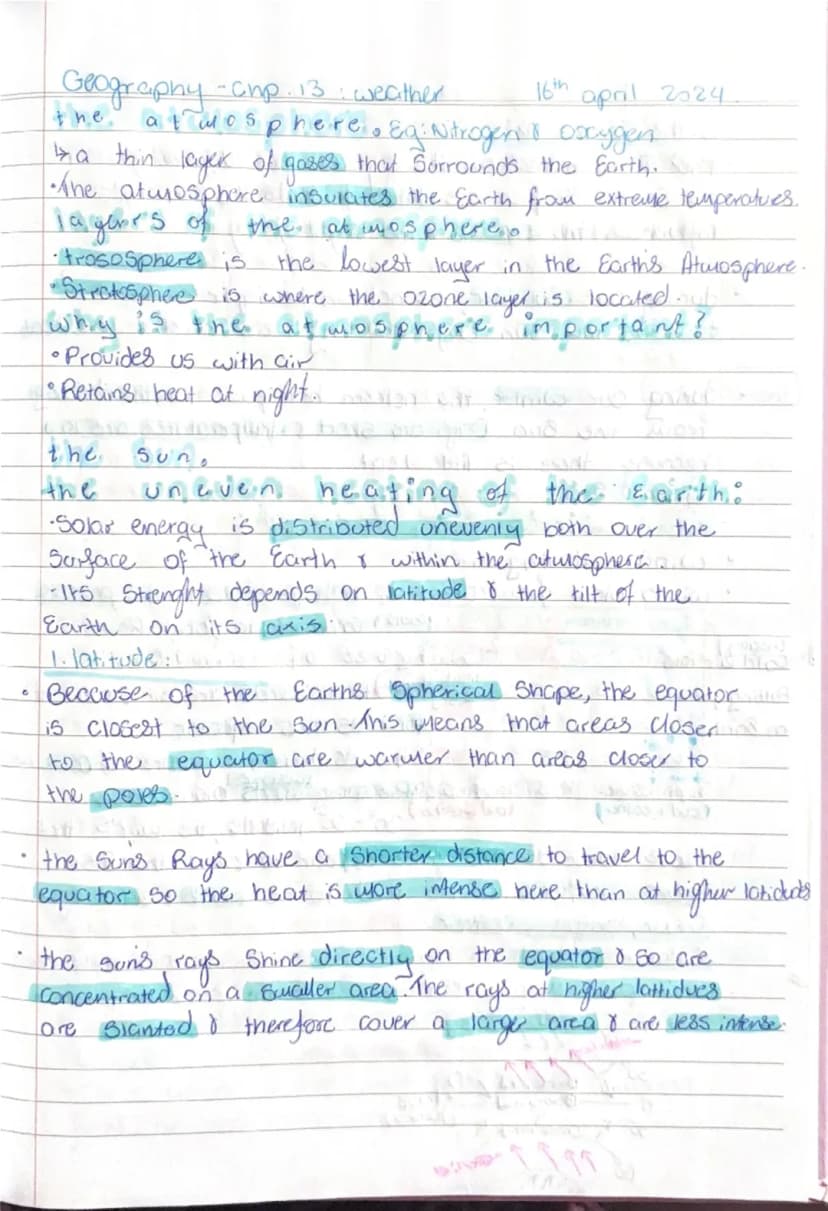 Geography - Chp. 13 : weather 16th april 2024
the atmosphere. Eg: Nitrogen & oxygen
↳ a thin layer of gases that Sorrounds the Earth.
•The atmosphere insulates the Earth from extreme temperatures.
layers of the atmosphere.
•trososphere is the lowest layer in the Earth's Atmosphere.
•Stratosphere is where the ozone layer is located.
why is the atmosphere important?
•Provides us with air
•Retains heat at night.
the sun.
the uneven heating of the Earth:
•Solar energy is distributed unevenly both over the
Surface of the Earth & within the atmosphere.
-Its Strenght depends on latitude & the tilt of the
Earth on its axis.
1. latitude:
• Because of the Earths Spherical Shape, the equator
is closest to the sun. This means that areas closer
to the equator are warmer than areas closer to
the poles.
• the Sun's Rays have a Shorter distance to travel to the
equator so the heat is more intense here than at higher
• the sun's rays Shine directly on the equator & so are
concentrated on a smaller area. The rays at higher lattidues
are slanted & therefore cover a larger area & are less intense.